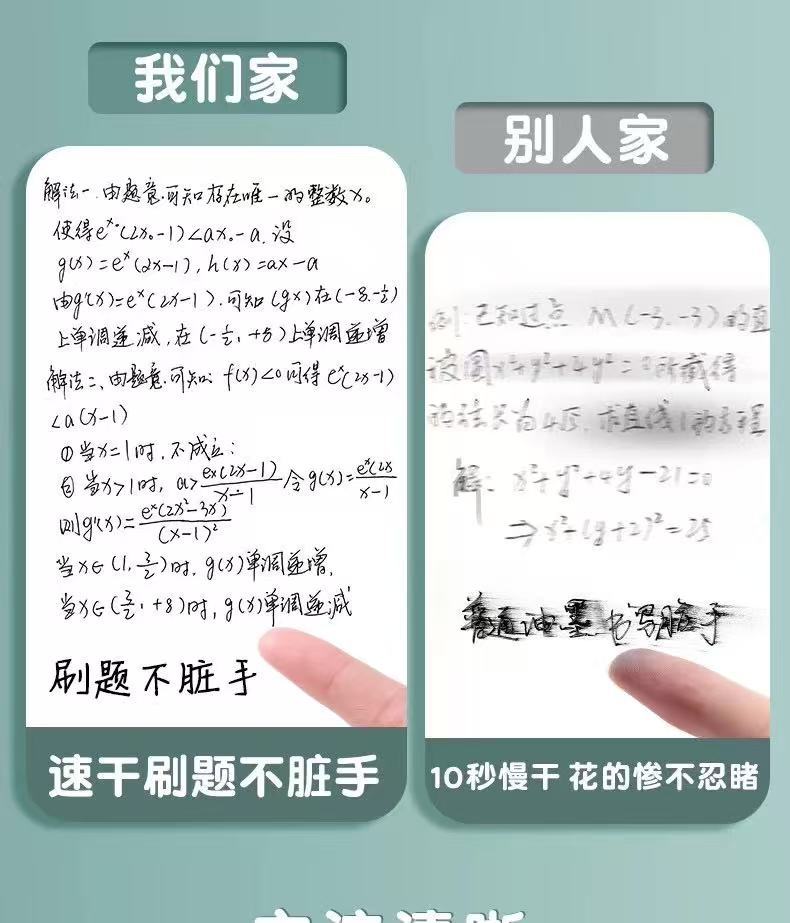 我们家
解法一.由题意.可知存在唯一的整数x。
使得eˣ·(2x。-1)<ax。-a.设
g(x)=eˣ(2x-1),h(x)=ax-a
由g'(x)=eˣ(2x-1).可知(gx)在(-8.-½)
上单调递减,在(-½,+8)上单调递增
解法二、由题意.可知: f(x)<0可得eˣ(2x-1)
<a(x-1)
①当x=1时,不成立:
② 当x>1时, a>eˣ(2x-1)/x-1 令g(x)=eˣ(2x/x-1
则g'(x)=eˣ(2x²-3x)/(x-1)²
当x∈(1,3/2)时,g(x)单调递增,
当x∈(3/2,+8)时,g(x)单调递减
刷题不脏手
速干刷题不脏手
别人家
例:已知过点 M(-3.-3)的直
被圆x²+y²+4y²=0所截得
的弦长为4√5.求直线l的方程
解: x²+y²+4y-21=0
⇒x²+(y+2)²=25
普通油墨书写脏手
10秒慢干 花的惨不忍睹